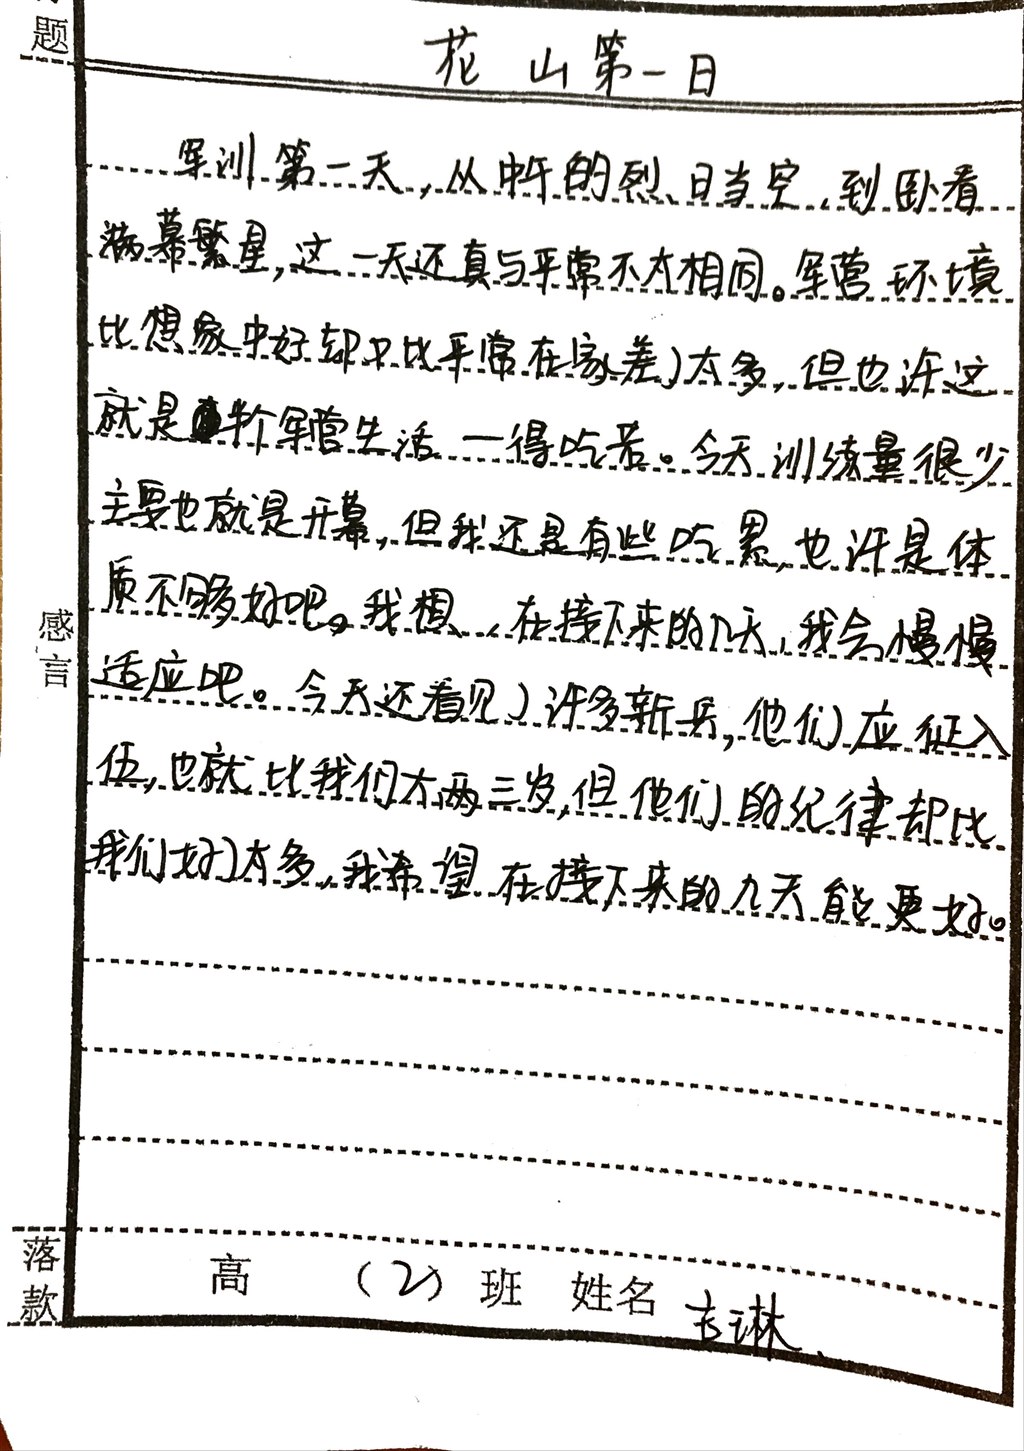 题
花山第一日
军训第一天，从中午的烈日当空，到卧看
满幕繁星，这一天还真与平常不太相同。军营环境
比想象中好却又比平常在家差了太多，但也许这
就是半个军营生活—得吃苦。今天训练量很少
主要也就是开幕，但我还是有些吃累，也许是体
质不够好吧。我想，在接下来的几天，我会慢慢
适应吧。今天还看见了许多新兵，他们应征入
伍，也就比我们大两三岁，但他们的纪律却比
我们好了太多，我希望在接下来的几天能更好。
感言
落款
高 （2）班 姓名 琳